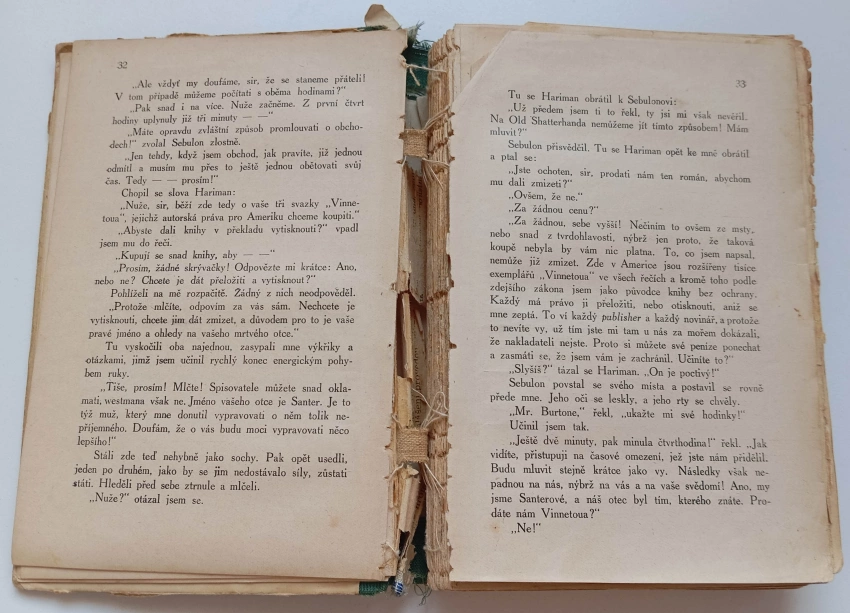 32
„Ale vždyť my doufáme, sir, že se staneme přáteli!
V tom případě můžeme počítati s oběma hodinami?"
„Pak snad i na více. Nuže začněme. Z první čtvrt
hodiny uplynuly již tři minuty — —"
„Máte opravdu zvláštní způsob promlouvati o obcho-
dech!" zvolal Sebulon zlostně.
„Jen tehdy, když jsem obchod, jak pravíte, již jednou
odmítl a musím mu přes to ještě jednou obětovati svůj
čas. Tedy — — prosím!"
Chopil se slova Hariman:
„Nuže, sir, běží zde tedy o vaše tři svazky „Vinne-
toua", jejichž autorská práva pro Ameriku chceme koupiti."
„Abyste dali knihy v překladu vytisknouti?" vpadl
jsem mu do řeči.
„Kupují se snad knihy, aby — —"
„Prosím, žádné skrývačky! Odpovězte mi krátce: Ano,
nebo ne? Chcete je dát přeložiti a vytisknout?"
Pohlíželi na mě rozpačitě. Žádný z nich neodpověděl.
„Protože mlčíte, odpovím za vás sám. Nechcete je
vytisknouti, chcete jim dát zmizet, a důvodem pro to je vaše
pravé jméno a ohledy na vašeho mrtvého otce."
Tu vyskočili oba najednou, zasypali mne výkřiky a
otázkami, jimž jsem učinil rychlý konec energickým pohy-
bem ruky.
„Tiše, prosím! Mlčte! Spisovatele můžete snad okla-
mati, westmana však ne. Jméno vašeho otce je Santer. Je to
týž muž, který mne donutil vypravovati o něm tolik ne-
příjemného. Doufám, že o vás budu moci vypravovati něco
lepšího!"
Stáli zde teď nehybně jako sochy. Pak opět usedli,
jeden po druhém, jako by se jim nedostávalo síly, zůstati
státi. Hleděli před sebe ztrnule a mlčeli.
„Nuže?" otázal jsem se.
33
Tu se Hariman obrátil k Sebulonovi:
„Už předem jsem ti to řekl, ty jsi mi však nevěřil.
Na Old Shatterhanda nemůžeme jít tímto způsobem! Mám
mluvit?"
Sebulon přisvědčil. Tu se Hariman opět ke mně obrátil
a ptal se:
„Jste ochoten, sir, prodati nám ten román, abychom
mu dali zmizeti?"
„Ovšem, že ne."
„Za žádnou cenu?"
„Za žádnou, sebe vyšší! Nečiním to ovšem ze msty,
nebo snad z tvrdohlavosti, nýbrž jen proto, že taková
koupě nebyla by vám nic platna. To, co jsem napsal,
nemůže již zmizet. Zde v Americe jsou rozšířeny tisíce
exemplářů „Vinnetoua" ve všech řečích a kromě toho podle
zdejšího zákona jsem jako původce knihy bez ochrany.
Každý má právo ji přeložiti, nebo otisknouti, aniž se
mne zeptá. To ví každý publisher a každý novinář, a protože
to nevíte vy, už tím jste mi tam u nás za mořem dokázali,
že nakladateli nejste. Proto si můžete své peníze ponechat
a zasmáti se, že jsem vám je zachránil. Učiníte to?"
„Slyšíš?" tázal se Hariman. „On je poctivý!"
Sebulon povstal se svého místa a postavil se rovně
přede mne. Jeho oči se leskly, a jeho rty se chvěly.
„Mr. Burtone," řekl, „ukažte mi své hodinky!"
Učinil jsem tak.
„Ještě dvě minuty, pak minula čtvrthodina!" řekl. „Jak
vidíte, přistupuji na časové omezení, jež jste nám přidělil.
Budu mluvit stejně krátce jako vy. Následky však ne-
padnou na nás, nýbrž na vás a na vaše svědomí! Ano, my
jsme Santerové, a náš otec byl tím, kterého znáte. Pro-
dáte nám Vinnetoua?"
„Ne!"